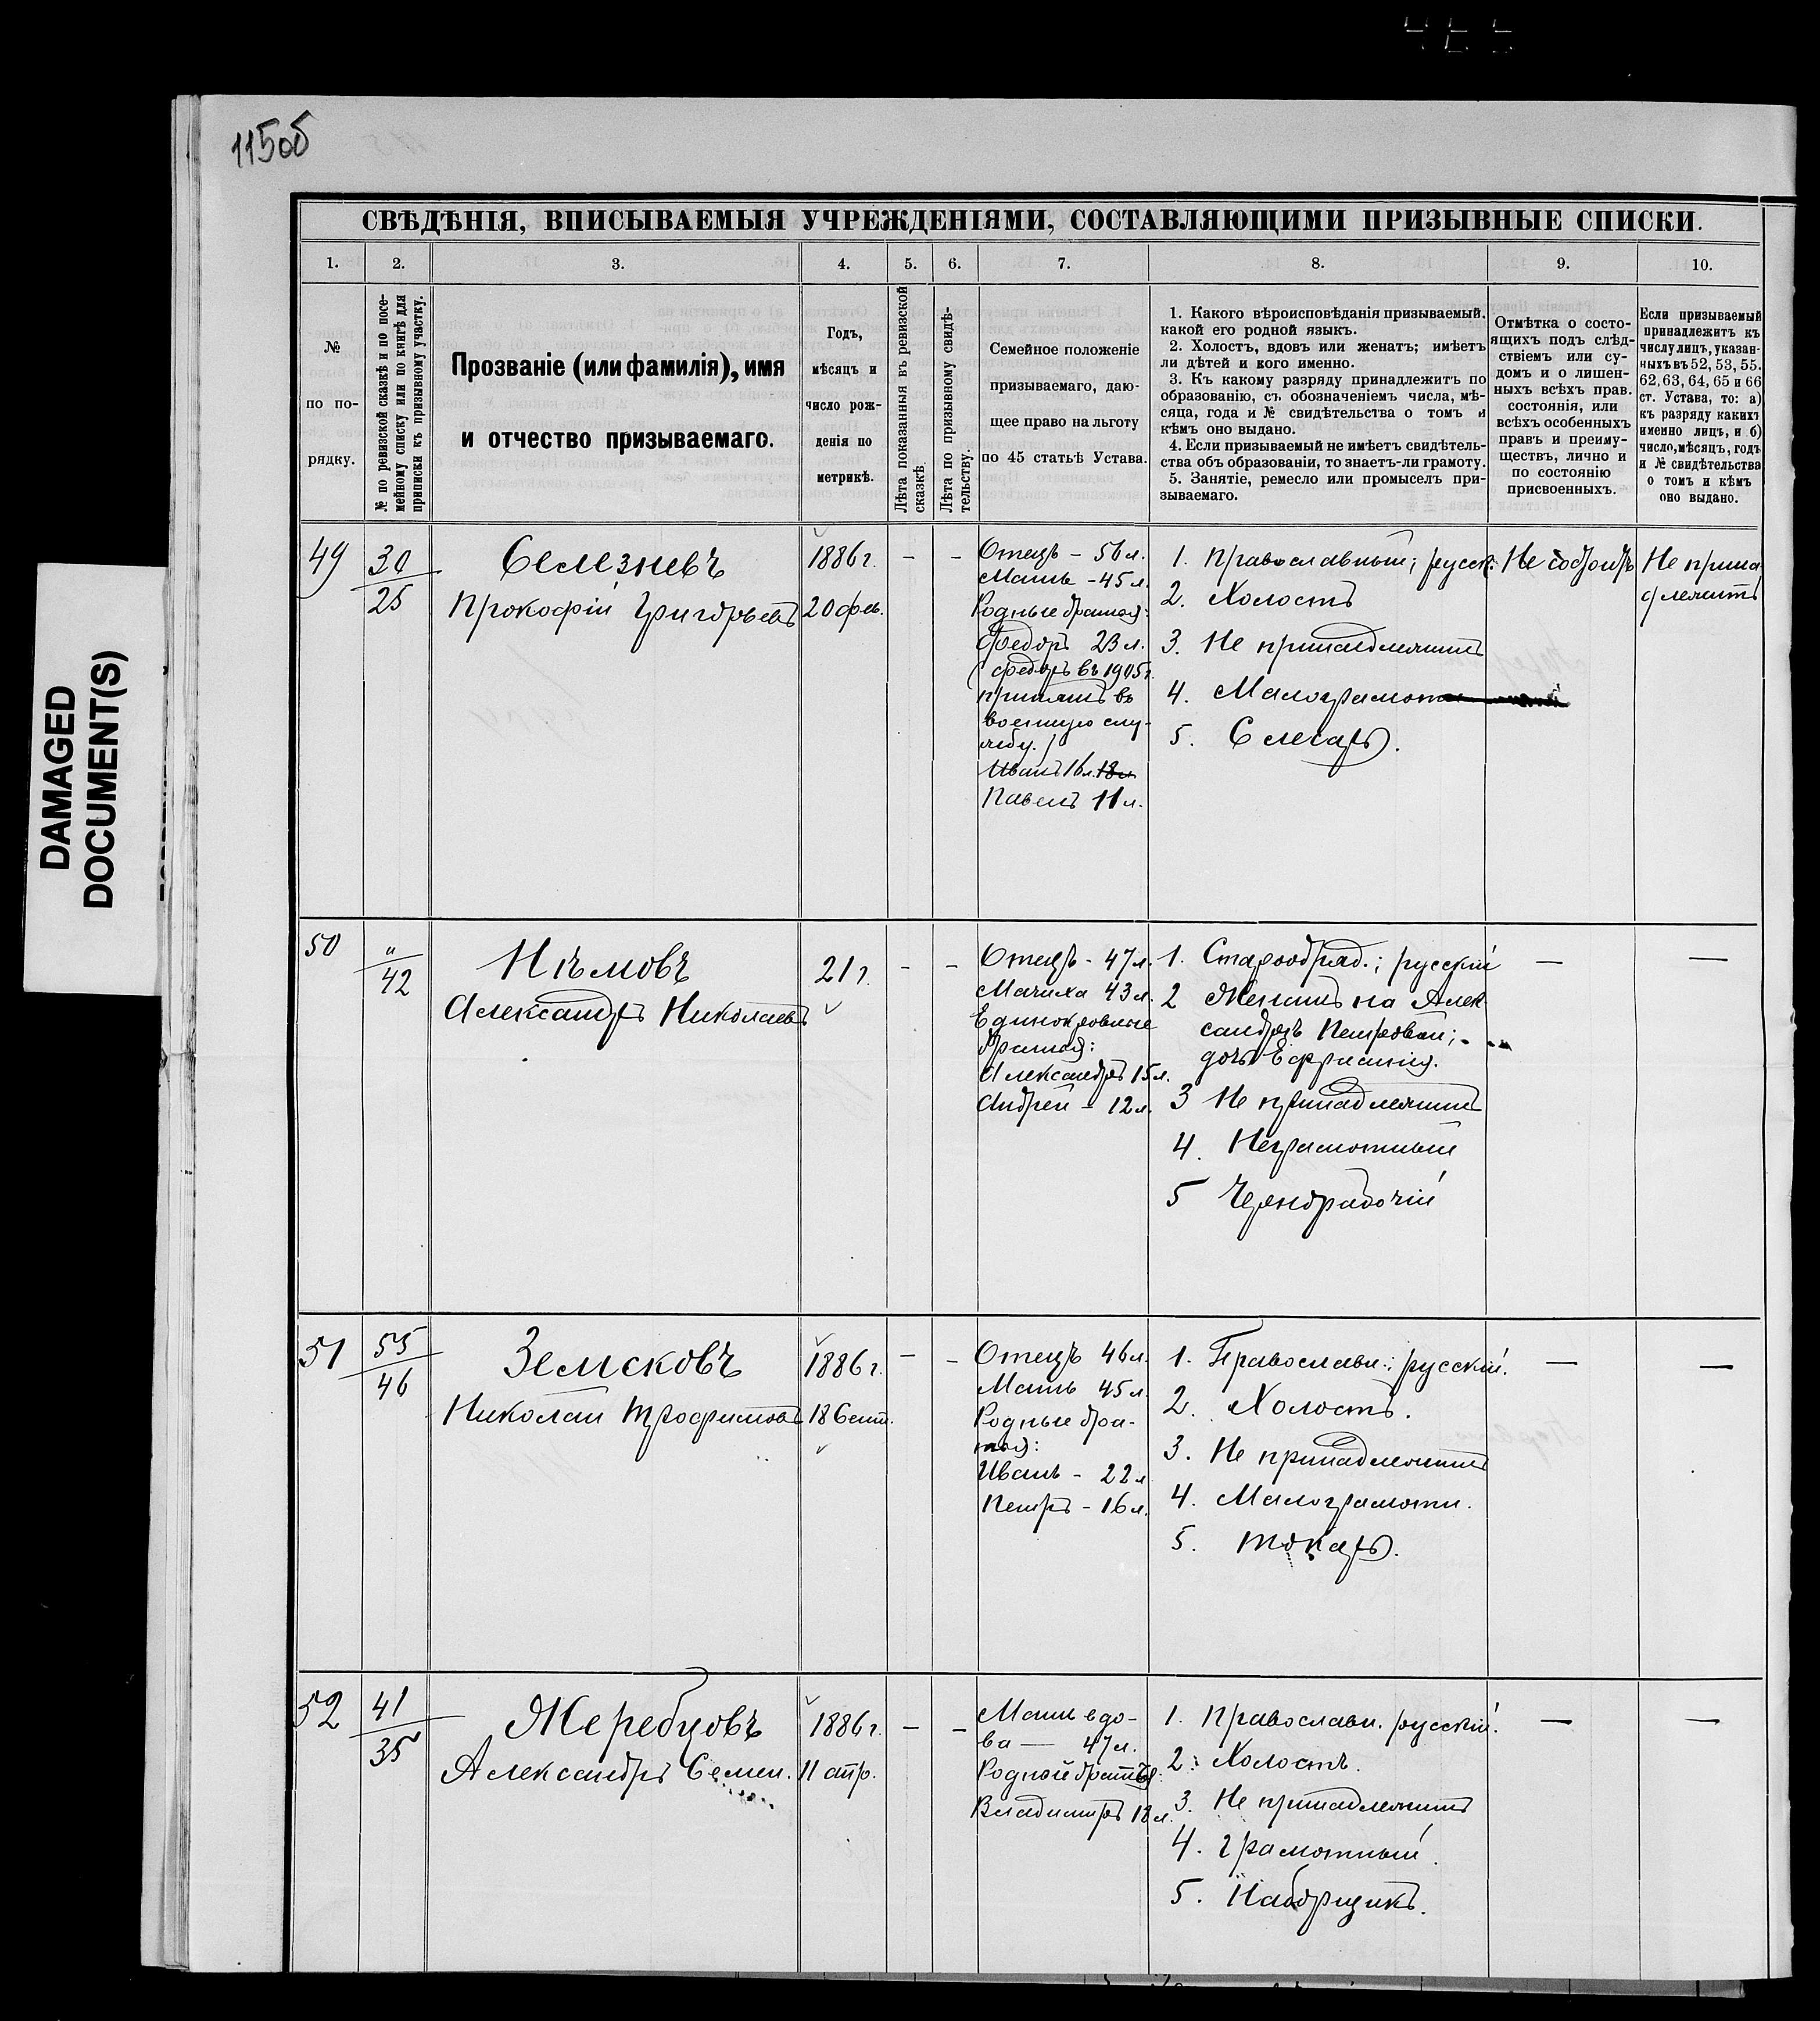 115об
DAMAGED
DOCUMENT(S)
СВѢДѢНІЯ, ВПИСЫВАЕМЫЯ УЧРЕЖДЕНІЯМИ, СОСТАВЛЯЮЩИМИ ПРИЗЫВНЫЕ СПИСКИ.
1. 2. 3. 4. 5. 6. 7. 8. 9. 10.
№
по по-
рядку.
№ по ревизской сказкѣ и по посе-
мейному списку или по книгѣ для
приписки къ призывному участку.
Прозваніе (или фамилія), имя
и отчество призываемаго.
Годъ,
мѣсяцъ и
число рож-
денія по
метрикѣ.
Лѣта показанныя въ ревизской
сказкѣ.
Лѣта по призывному свидѣ-
тельству.
Семейное положеніе
призываемаго, даю-
щее право на льготу
по 45 статьѣ Устава.
1. Какого вѣроисповѣданія призываемый,
какой его родной языкъ.
2. Холостъ, вдовъ или женатъ; имѣетъ
ли дѣтей и кого именно.
3. Къ какому разряду принадлежитъ по
образованію, съ обозначеніемъ числа, мѣ-
сяца, года и № свидѣтельства о томъ и
кѣмъ оно выдано.
4. Если призываемый не имѣетъ свидѣтель-
ства объ образованіи, то знаетъ-ли грамоту.
5. Занятіе, ремесло или промыселъ при-
зываемаго.
Отмѣтка о состо-
ящихъ подъ слѣд-
ствіемъ или су-
домъ и о лишен-
ныхъ всѣхъ прав.
состоянія, или
всѣхъ особенныхъ
правъ и преиму-
ществъ, лично и
по состоянію
присвоенныхъ.
Если призываемый
принадлежитъ къ
числу лицъ, указан-
ныхъ въ 52, 53, 55.
62, 63, 64, 65 и 66
ст. Устава, то: а)
къ разряду какихъ
именно лицъ, и б)
число, мѣсяцъ, годъ
и № свидѣтельства
о томъ и кѣмъ
оно выдано.
49
30
25
Селезневъ
Прокофій Григорьевъ
1886 г.
20 фев.
-
-
Отецъ - 56 л.
Мать - 45 л.
Родные братья:
Федоръ 23 л.
(Федоръ въ 1905 г.
принятъ въ
военную слу-
жбу.)
Иванъ 16 л. 18 л
Павелъ 11 л.
1. Православный; русск.
2. Холостъ
3. Не принадлежитъ
4. Малограмот
5. Слесарь.
Не состоитъ
Не прина
длежитъ
50
"
42
Нѣмовъ
Александръ Николаевъ
21 г.
-
-
Отецъ - 47 л.
Мачиха 43 л.
Единокровные
братья:
Александръ 15 л.
Андрей - 12 л.
1. Старообряд.; русскій
2 Женатъ на Алек
сандрѣ Петровой;
дочь Ефросинія.
3 Не принадлежитъ
4. Неграмотный
5 Чернорабочій
—
—
51
55
46
Земсковъ
Николай Трофимовъ
1886 г.
18 Сент.
-
-
Отецъ 46 л.
Мать 45 л.
Родные бра-
тья:
Иванъ - 22 л
Петръ - 16 л.
1. Православн.; русскій.
2. Холостъ.
3. Не принадлежитъ
4. Малограмотн.
5. Токарь.
—
—
52
41
35
Жеребцовъ
Александръ Семен.
1886 г.
11 апр.
-
-
Мать вдо-
ва — 47 л.
Родной братъ:
Владиміръ 18 л.
1. Православн. русскій.
2. Холостъ.
3. Не принадлежитъ
4. грамотный.
5. Наборщикъ.
—
—